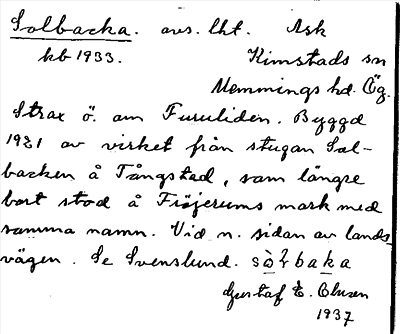 Solbacka. avs. lht. Ask
kb 1933. Kimstads sn
Memmings hd. Ög.
Strax ö. om Furuliden. Byggd
1921 av virket från stugan Sol-
backen å Tångstad, som längre
bort stod å Fröjerums mark med
samma namn. Vid n. sidan av lands-
vägen. Se Svenslund. sòłbaka
Gustaf E. Olsson
1937